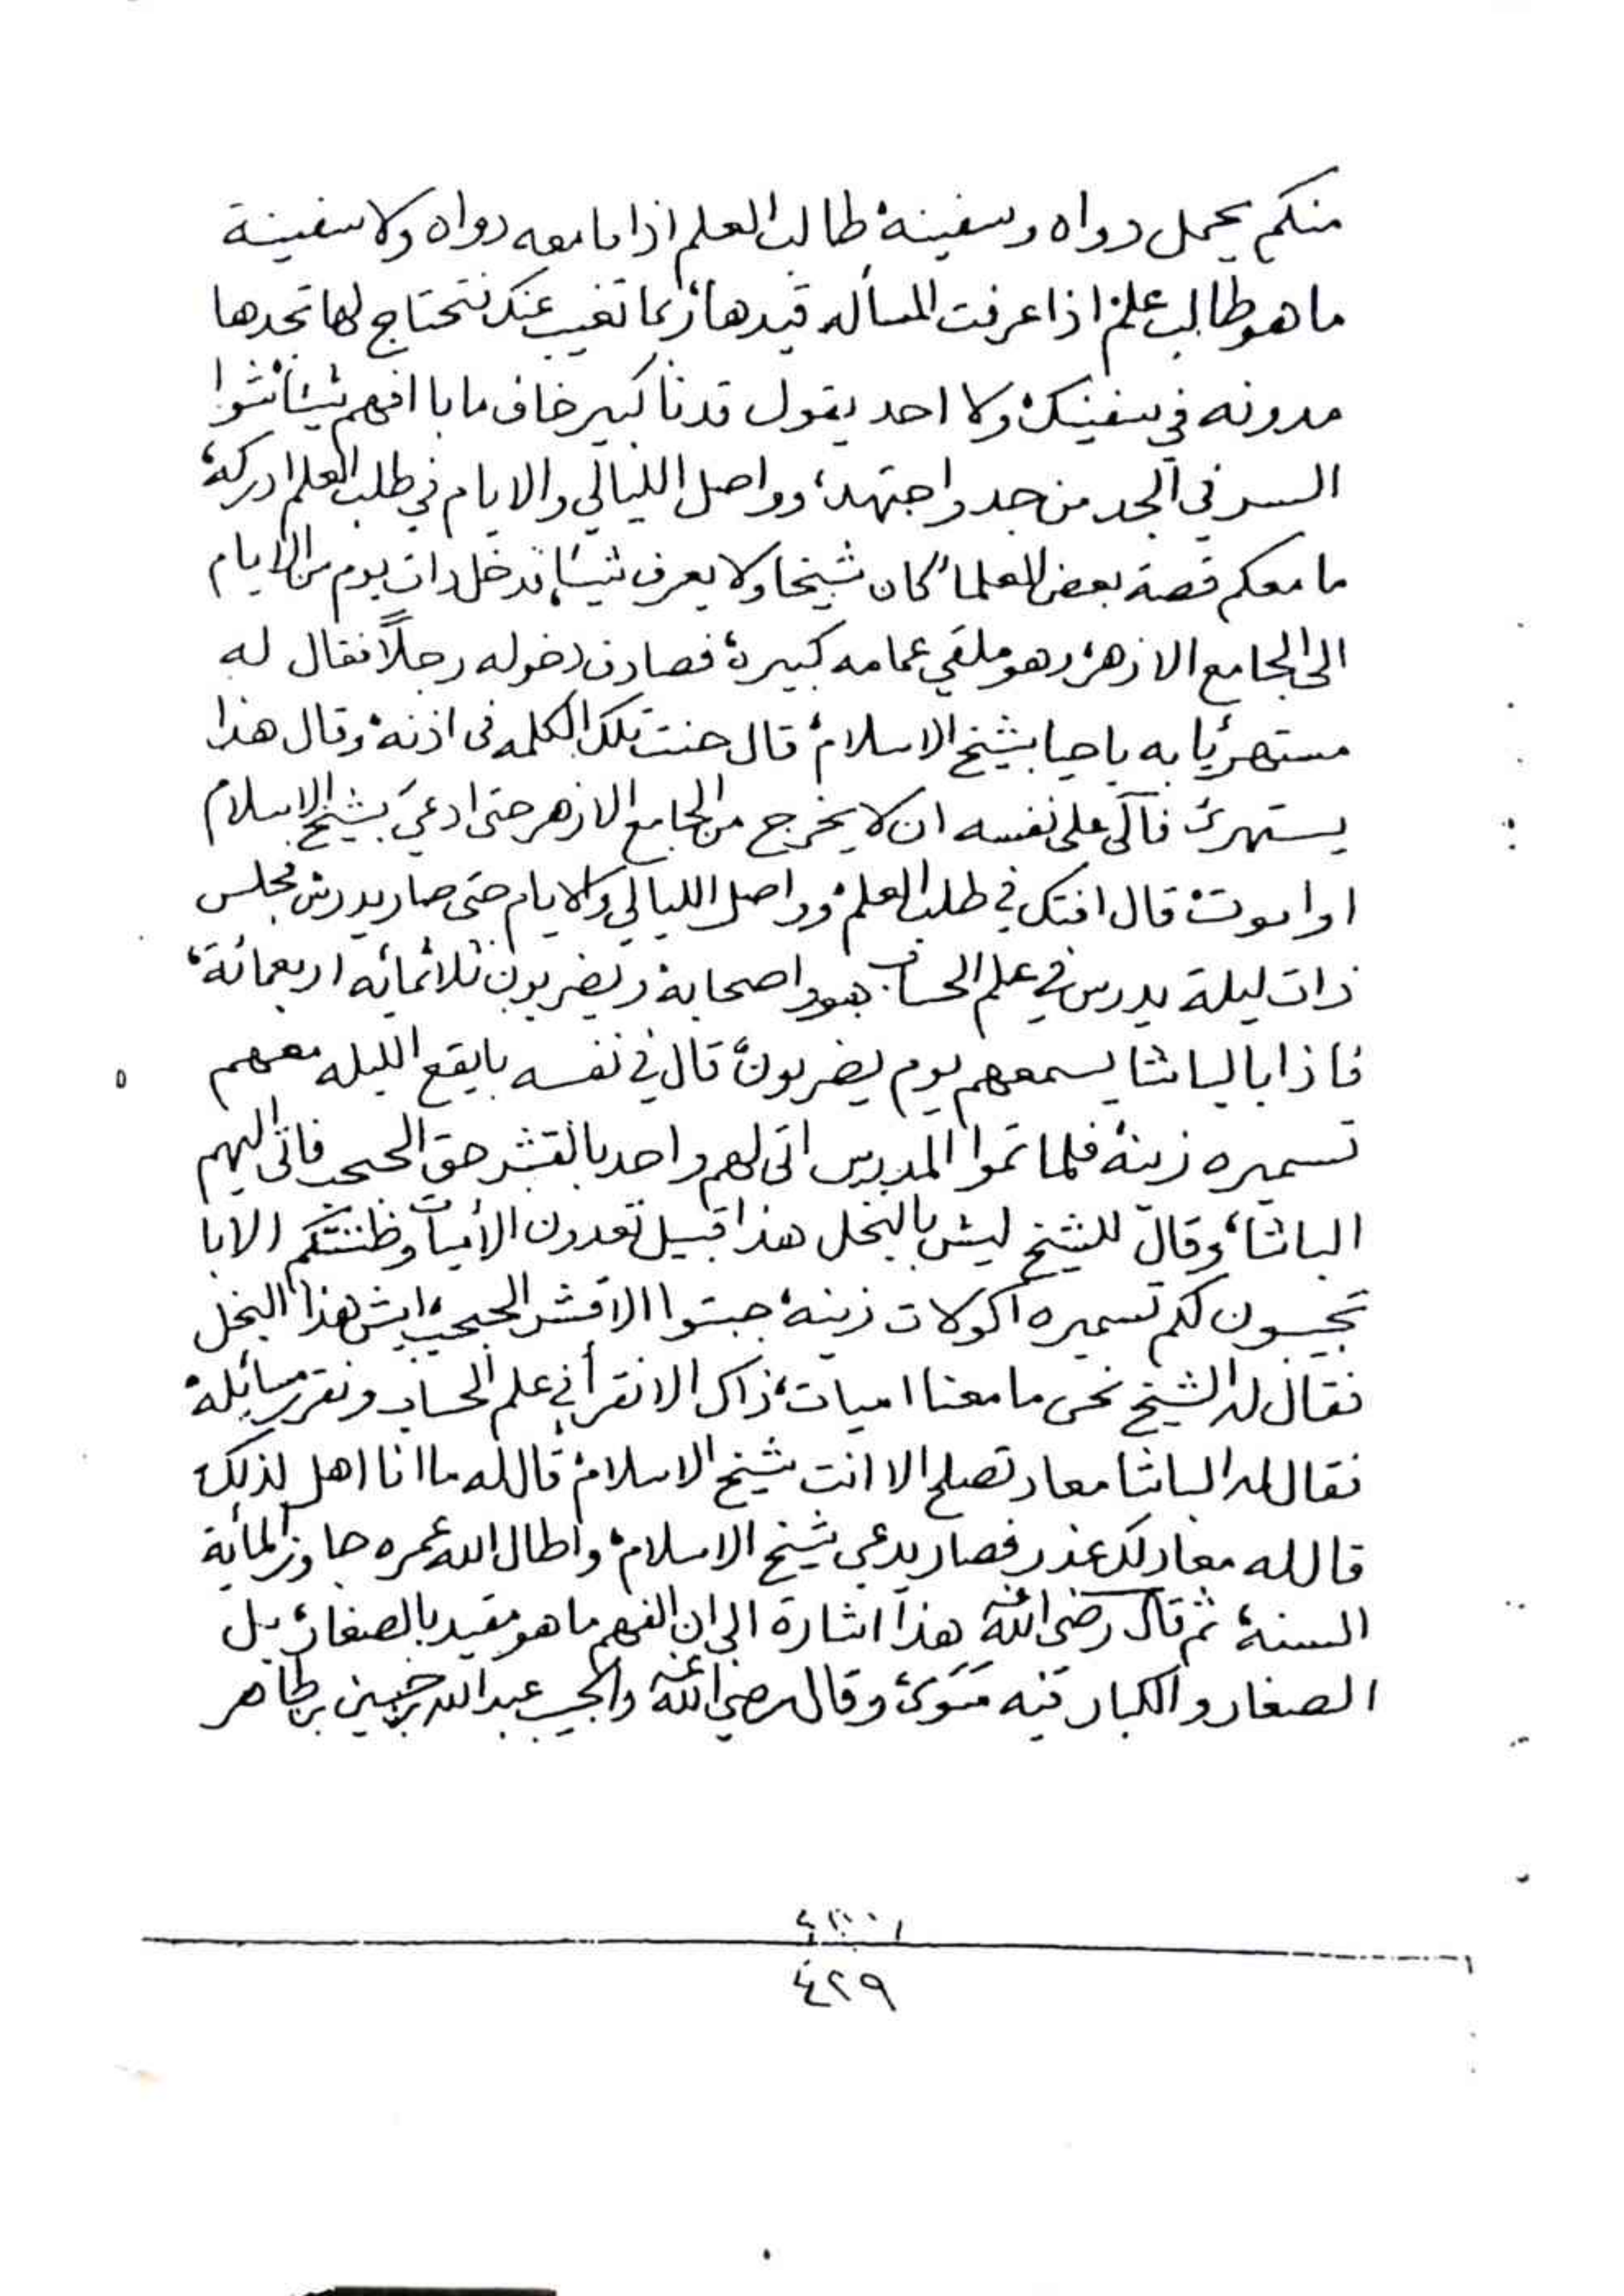 منكم يحمل دواه وسفينة، طالب العلم اذا ما معه دواه ولا سفينة
ما هو طالب علم، اذا عرفت المسأله قيدها، ربما تغيب عنك فتحتاج لها تجدها
مدونه في سفينتك، ولا احد يقول قدنا كبير خاف ما با افهم شيئا، شوا
السر في الجد من جد واجتهد، وواصل الليالي والايام في طلب العلم ادركه،
ما معكم قصة بعض العلماء كان شيخا ولا يعرف شيئا، فدخل ذات يوم من الايام
الى الجامع الازهر، وهو ملقي عمامه كبيرة، فصادف دخوله رجلاً فقال له
مستهزئا به يا حيا بشيخ الاسلام، قال حنت تلك الكلمه في اذنه، وقال هذا
يستهزئ فآلى على نفسه ان لا يخرج من الجامع الازهر حتى ادعىَ بشيخ الاسلام
او اموت، قال افتك في طلب العلم، وواصل الليالي والايام حتى صار يدرس، مجلس
ذات ليلة يدرس في علم الحساب هو واصحابه، ويضربون ثلاثمائه اربعمائة،
فاذا بالباشا يسمعهم يوم يضربون، قال في نفسه بايقع الليله معهم
تسميره زينة، فلما تموا المدرس اتى لهم واحد بالقشر حق الحبحب فاتى اليهم
الباشا، وقال للشيخ ليش بالبخل هذا قبيل تعدون الأميات وظننتكم الا با
تجيبون لكم تسميره اكولات زينة، جبتوا الا قشر الحبحب، ايش هذا البخل
فقال له الشيخ نحن ما معنا اميات، ذاك الا نقرأ في علم الحساب ونقرر مسائله،
فقال له الباشا معاد تصلح الا انت شيخ الاسلام، قال له ما انا اهل لذلك،
قال له معاد لك عذر فصار يدعى شيخ الاسلام، واطال الله عمره جاوز المأية
السنة، ثم قال رضي الله عنه هذا اشارة الى ان الفهم ما هو مقيد بالصغار، بل
الصغار والكبار فيه سَوَىَ، وقال رضي الله عنه والحبيب عبدالله بن حسين بن طاهر
٤٢٩